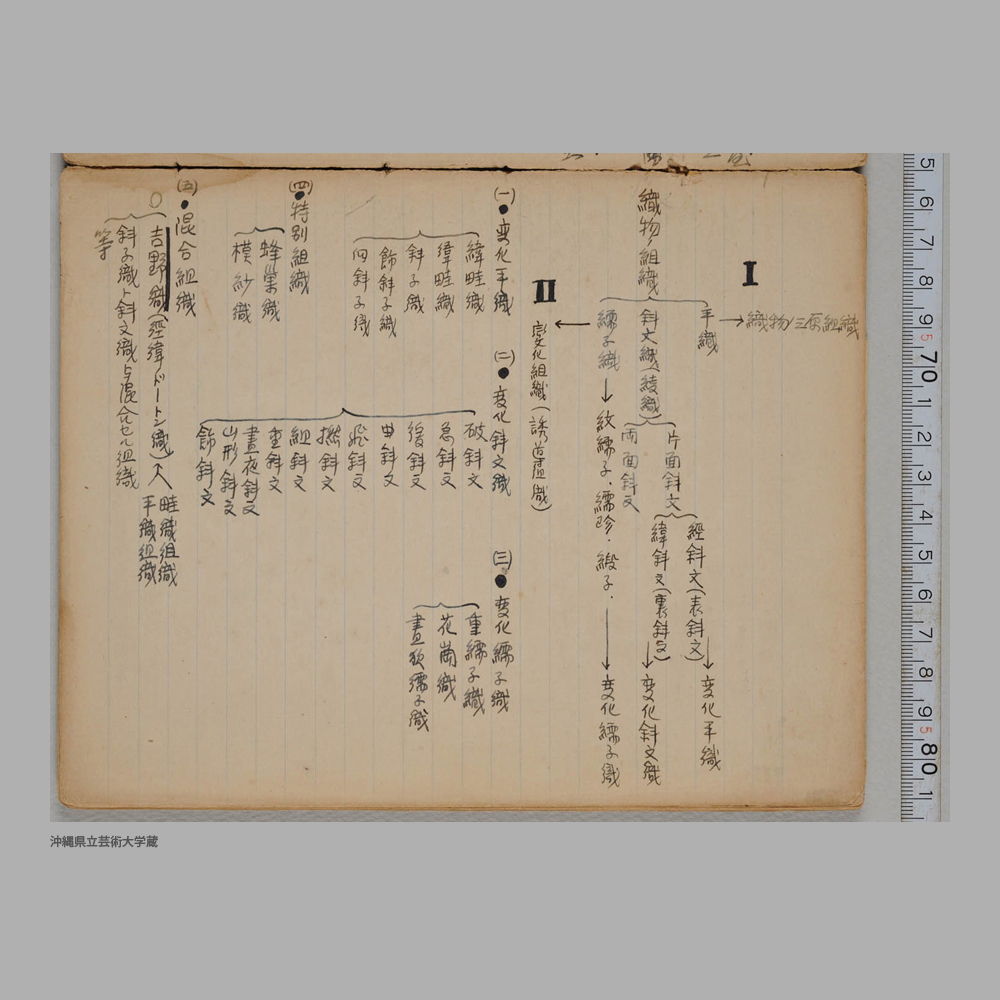 I
織物ノ三原組織
織物ノ組織
平織
斜文織(綾織)
繻子織
片面斜文
両面斜文
經斜文(表斜文)
緯斜文(裏斜文)
紋繻子.繻珍.緞子.
変化平織
変化斜文織
変化繻子織
II
変化組織(誘導組織)
(一)●変化平織
緯畦織
斜子織
飾斜子織
(二)●変化斜文織
破斜文
急斜文
緩斜文
曲斜文
飛斜文
撚斜文
組斜文
重斜文
昼夜斜文
山形斜文
飾斜文
(三)●変化繻子織
重繻子織
花崗織
昼夜繻子織
(四)●特別組織
蜂巣織
模紗織
(五)●混合組織
○吉野織(經緯ドートン織)
畦織組織
平織組織
斜子織ト斜文織与混合セル組織
等
5 6 7 8 9 5 70 1 2 3 4 5 6 7 8 9 5 80 1
沖縄県立芸術大学蔵